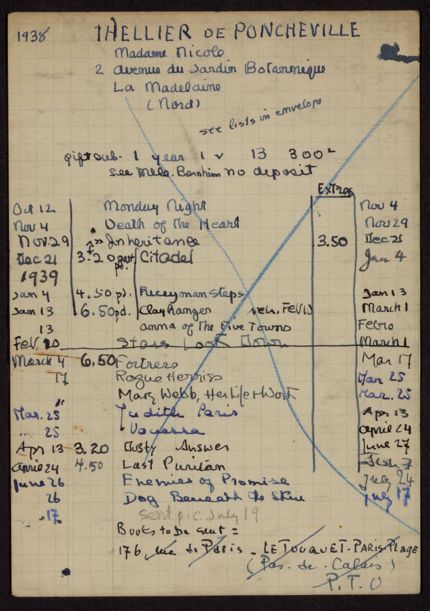 1938 THELLIER DE PONCHEVILLE
Madame Nicole
2 avenue du Jardin Botannique
La Madelaine
(Nord)
see lists in envelope
gift sub. 1 year 1 v 13 300
see Mlle. Bernheim no deposit
Extras
Oct 12 Monday Night Nov 4
Nov 4 Death of the Heart Nov 29
Nov. 29 Inheritance 3.50 Dec 21
Dec 21 3.20 Citadel Jan 4
1939
Jan 4 4.50 pd. Riceyman Steps Jan 13
Jan 13 6.50 pd. Clayhanger March 1
13 Anna of the Five Towns Feb 10
Feb. 10 Stars Look Down March 1
March 4 6.50 Fortress Mar 17
17 Rogue Herries Mar 25
Mary Webb, Her Life & Work Mar. 25
Mar. 25 Judith Paris Apr 13
" 25 Vanessa April 24
Apr 13 3.20 Dusty Answer June 27
April 24 4.50 Last Puritan
June 26 Enemies of Promise July 24
26 Dog Beneath the Skin July 17
17 sent p.c. July 19
Books to be sent =
176 rue de Paris - LE TOUQUET-PARIS Plage
(Pas-de-Calais)
P.T.O